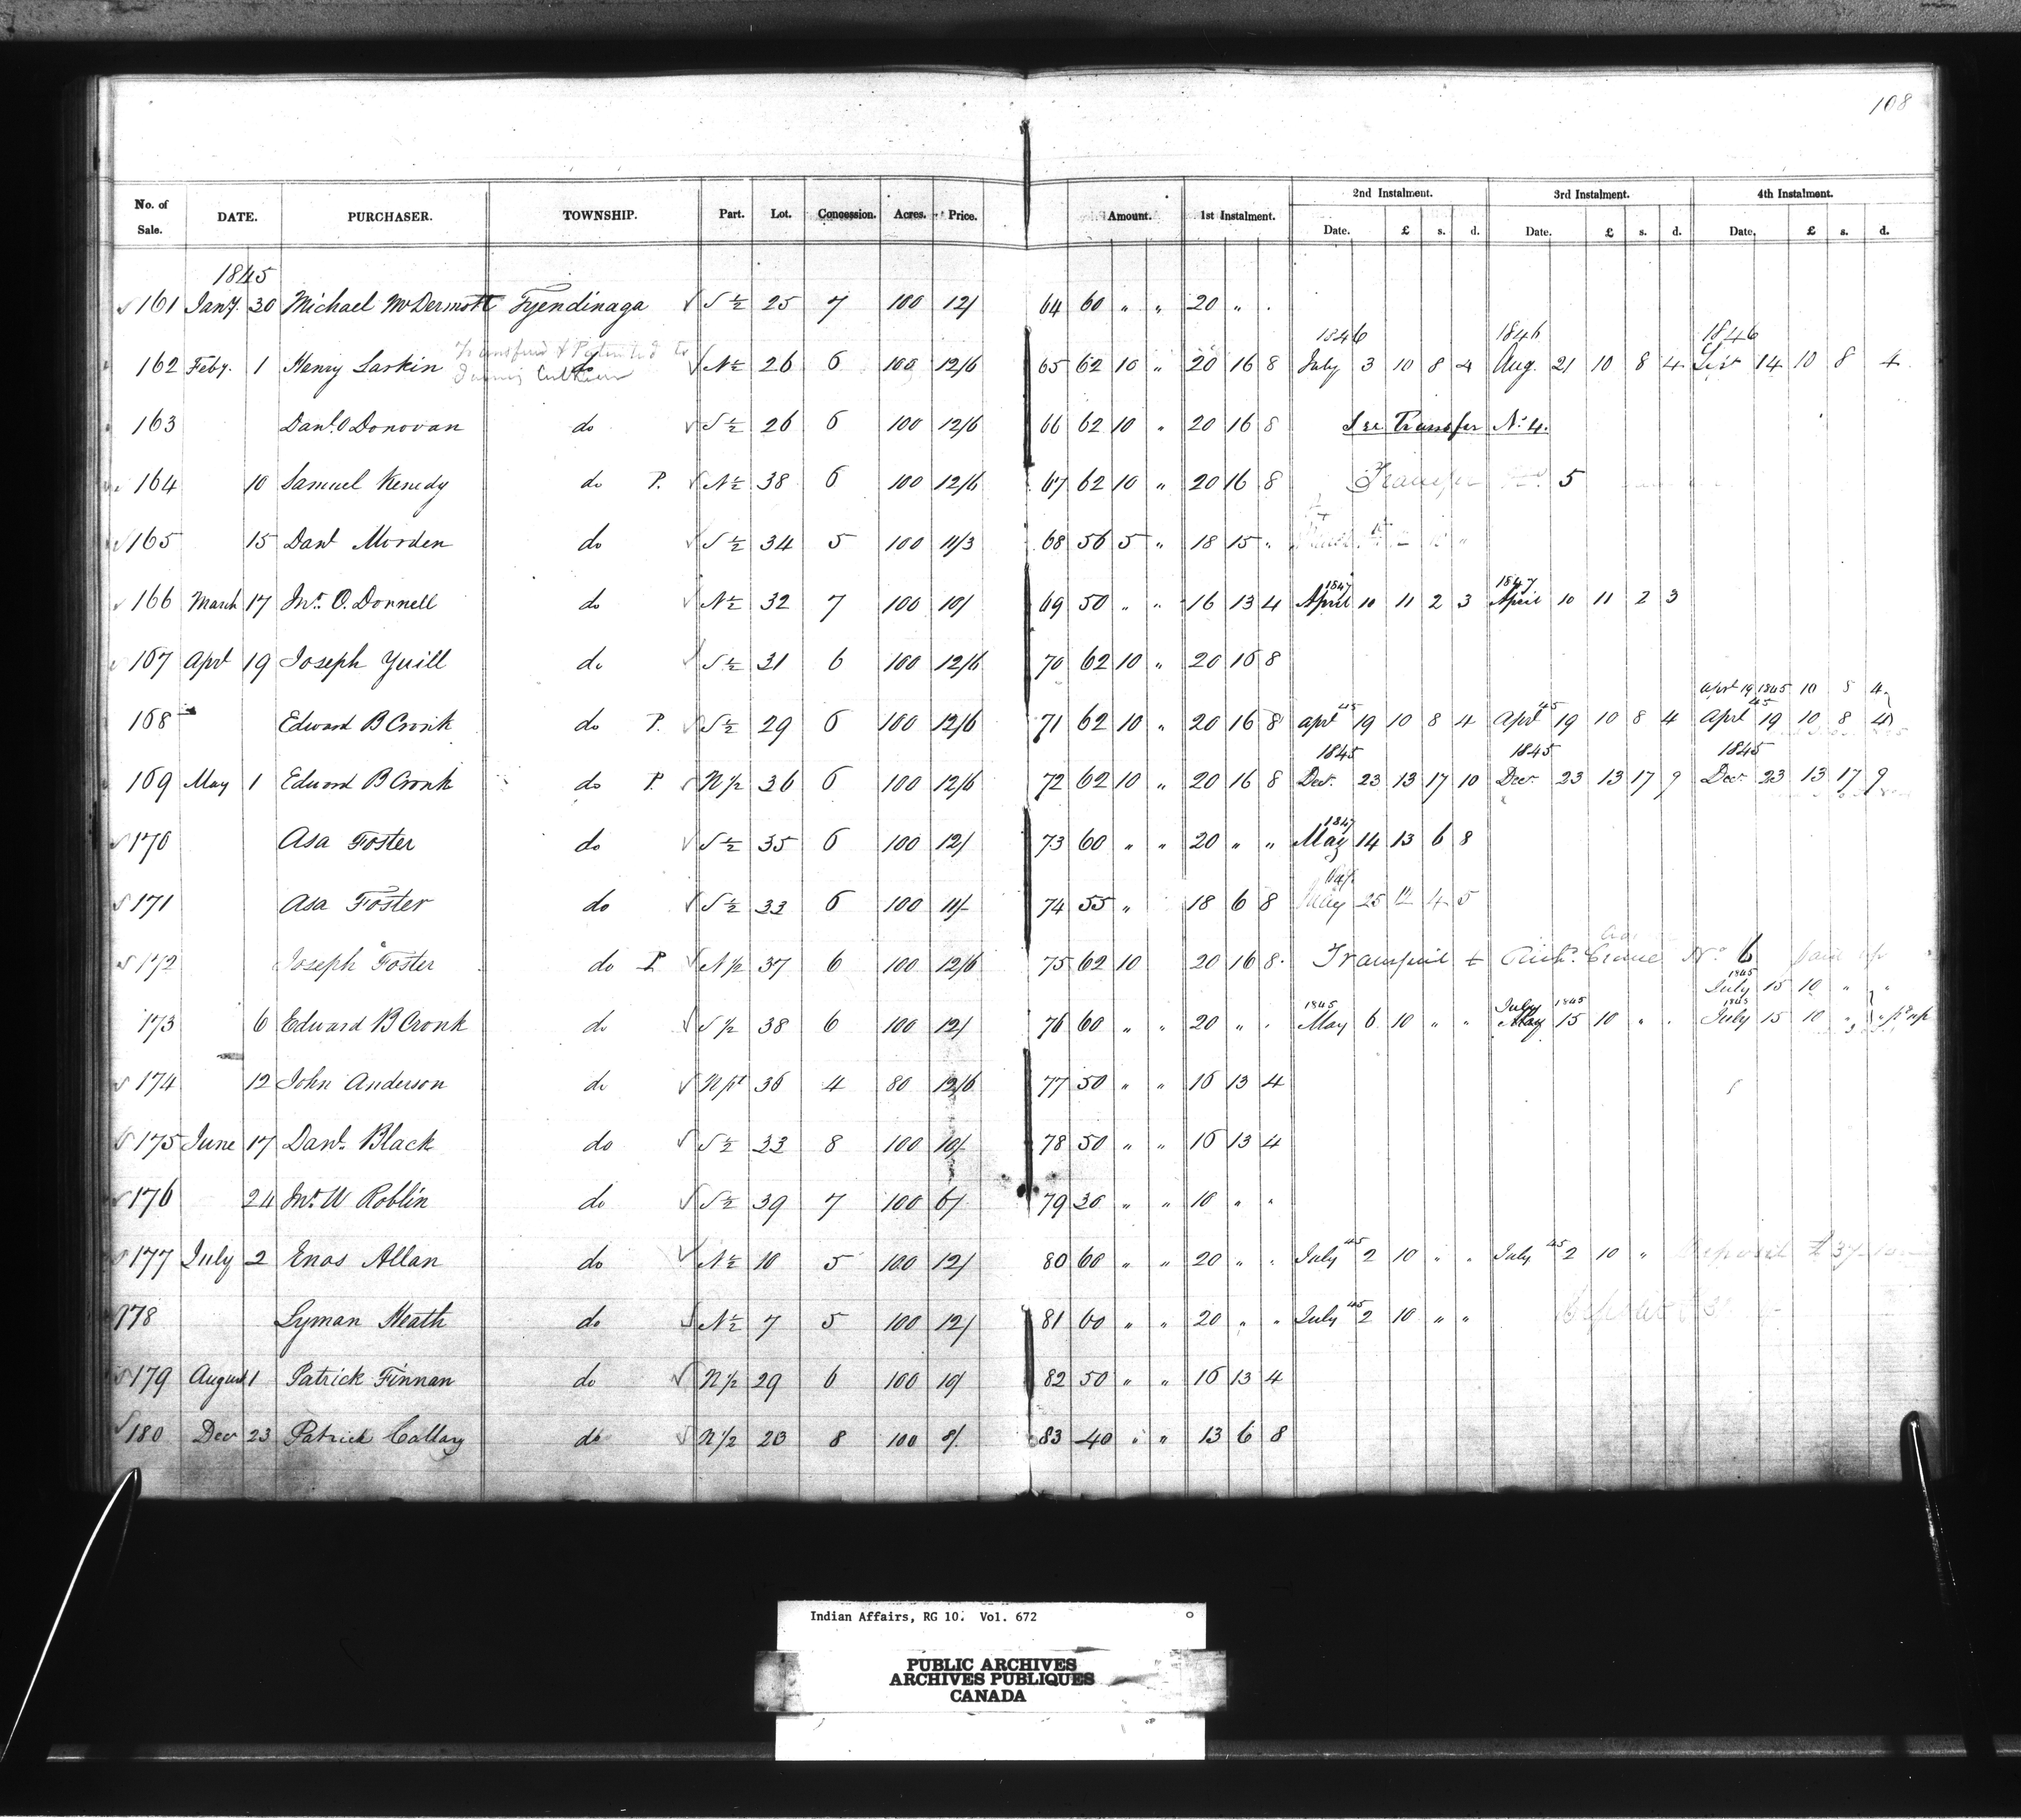 108
No. of Sale. DATE. PURCHASER. TOWNSHIP. Part. Lot. Concession. Acres. Price. Amount. 1st Instalment. 2nd Instalment. 3rd Instalment. 4th Instalment.
Date. £ s. d. Date. £ s. d. Date. £ s. d.
1845
161 Jany. 30 Michael McDermott Tyendinaga S ½ 25 7 100 12/ 64 60 " " 20 " "
Transferred & Patented to
1846 1846 1846
162 Feby. 1 Henry Larkin do N ½ 26 6 100 12/6 65 62 10 " 20 16 8 July 3 10 8 4 Aug. 21 10 8 4 14 10 8 4
163 Danl. O Donovan do S ½ 26 6 100 12/6 66 62 10 " 20 16 8 See Transfer No. 4.
164 10 Samuel Kenedy do P. N ½ 38 6 100 12/6 67 62 10 " 20 16 8 Transfer 5
165 15 Danl Morden do S ½ 34 5 100 11/3 68 56 5 " 18 15 "
1847 1847
166 March 17 Jno. O. Donnell do N ½ 32 7 100 10/ 69 50 " " 16 13 4 April 10 11 2 3 April 10 11 2 3
167 Aprl 19 Joseph Yuill do S ½ 31 6 100 12/6 70 62 10 " 20 16 8
Aprl 19 1845 10 8 4
168 Edward B Cronk do P. S ½ 29 6 100 12/6 71 62 10 " 20 16 8 Aprl 45 19 10 8 4 Aprl 45 19 10 8 4 Aprl 45 19 10 8 4
1845 1845 1845
169 May 1 Edward B Cronk do P. N ½ 36 6 100 12/6 72 62 10 " 20 16 8 Decr. 23 13 17 10 Decr. 23 13 17 9 Decr. 23 13 17 9
1847
170 Asa Foster do S ½ 35 6 100 12/ 73 60 " " 20 " " May 14 13 6 8
171 Asa Foster do S ½ 33 6 100 11/- 74 55 " 18 6 8 May 25 12 4 5
172 Joseph Foster do P. N ½ 37 6 100 12/6 75 62 10 20 16 8 No 6 paid up
1845
July 15 10 " "
1845 July 1845 1845
173 6 Edward B Cronk do S ½ 38 6 100 12/ 76 60 " " 20 " " May 6 10 " " May 15 10 " " July 15 10 " "
174 12 John Anderson do N pt 36 4 80 12/6 77 50 " " 16 13 4
175 June 17 Danl. Black do S ½ 33 8 100 10/- 78 50 " " 16 13 4
176 24 Jno. W Roblin do S ½ 39 7 100 6/ 79 30 " " 10 " "
177 July 2 Enos Allan do N ½ 10 5 100 12/ 80 60 " " 20 " " July 45 2 10 " " July 45 2 10 " Deposit
178 Lyman Heath do N ½ 7 5 100 12/ 81 60 " " 20 " " July 45 2 10 " "
179 August 1 Patrick Finnan do N ½ 29 6 100 10/ 82 50 " " 16 13 4
180 Decr 23 Patrick Callary do N ½ 23 8 100 8/. 83 40 " " 13 6 8
Indian Affairs, RG 10. Vol. 672
PUBLIC ARCHIVES
ARCHIVES PUBLIQUES
CANADA